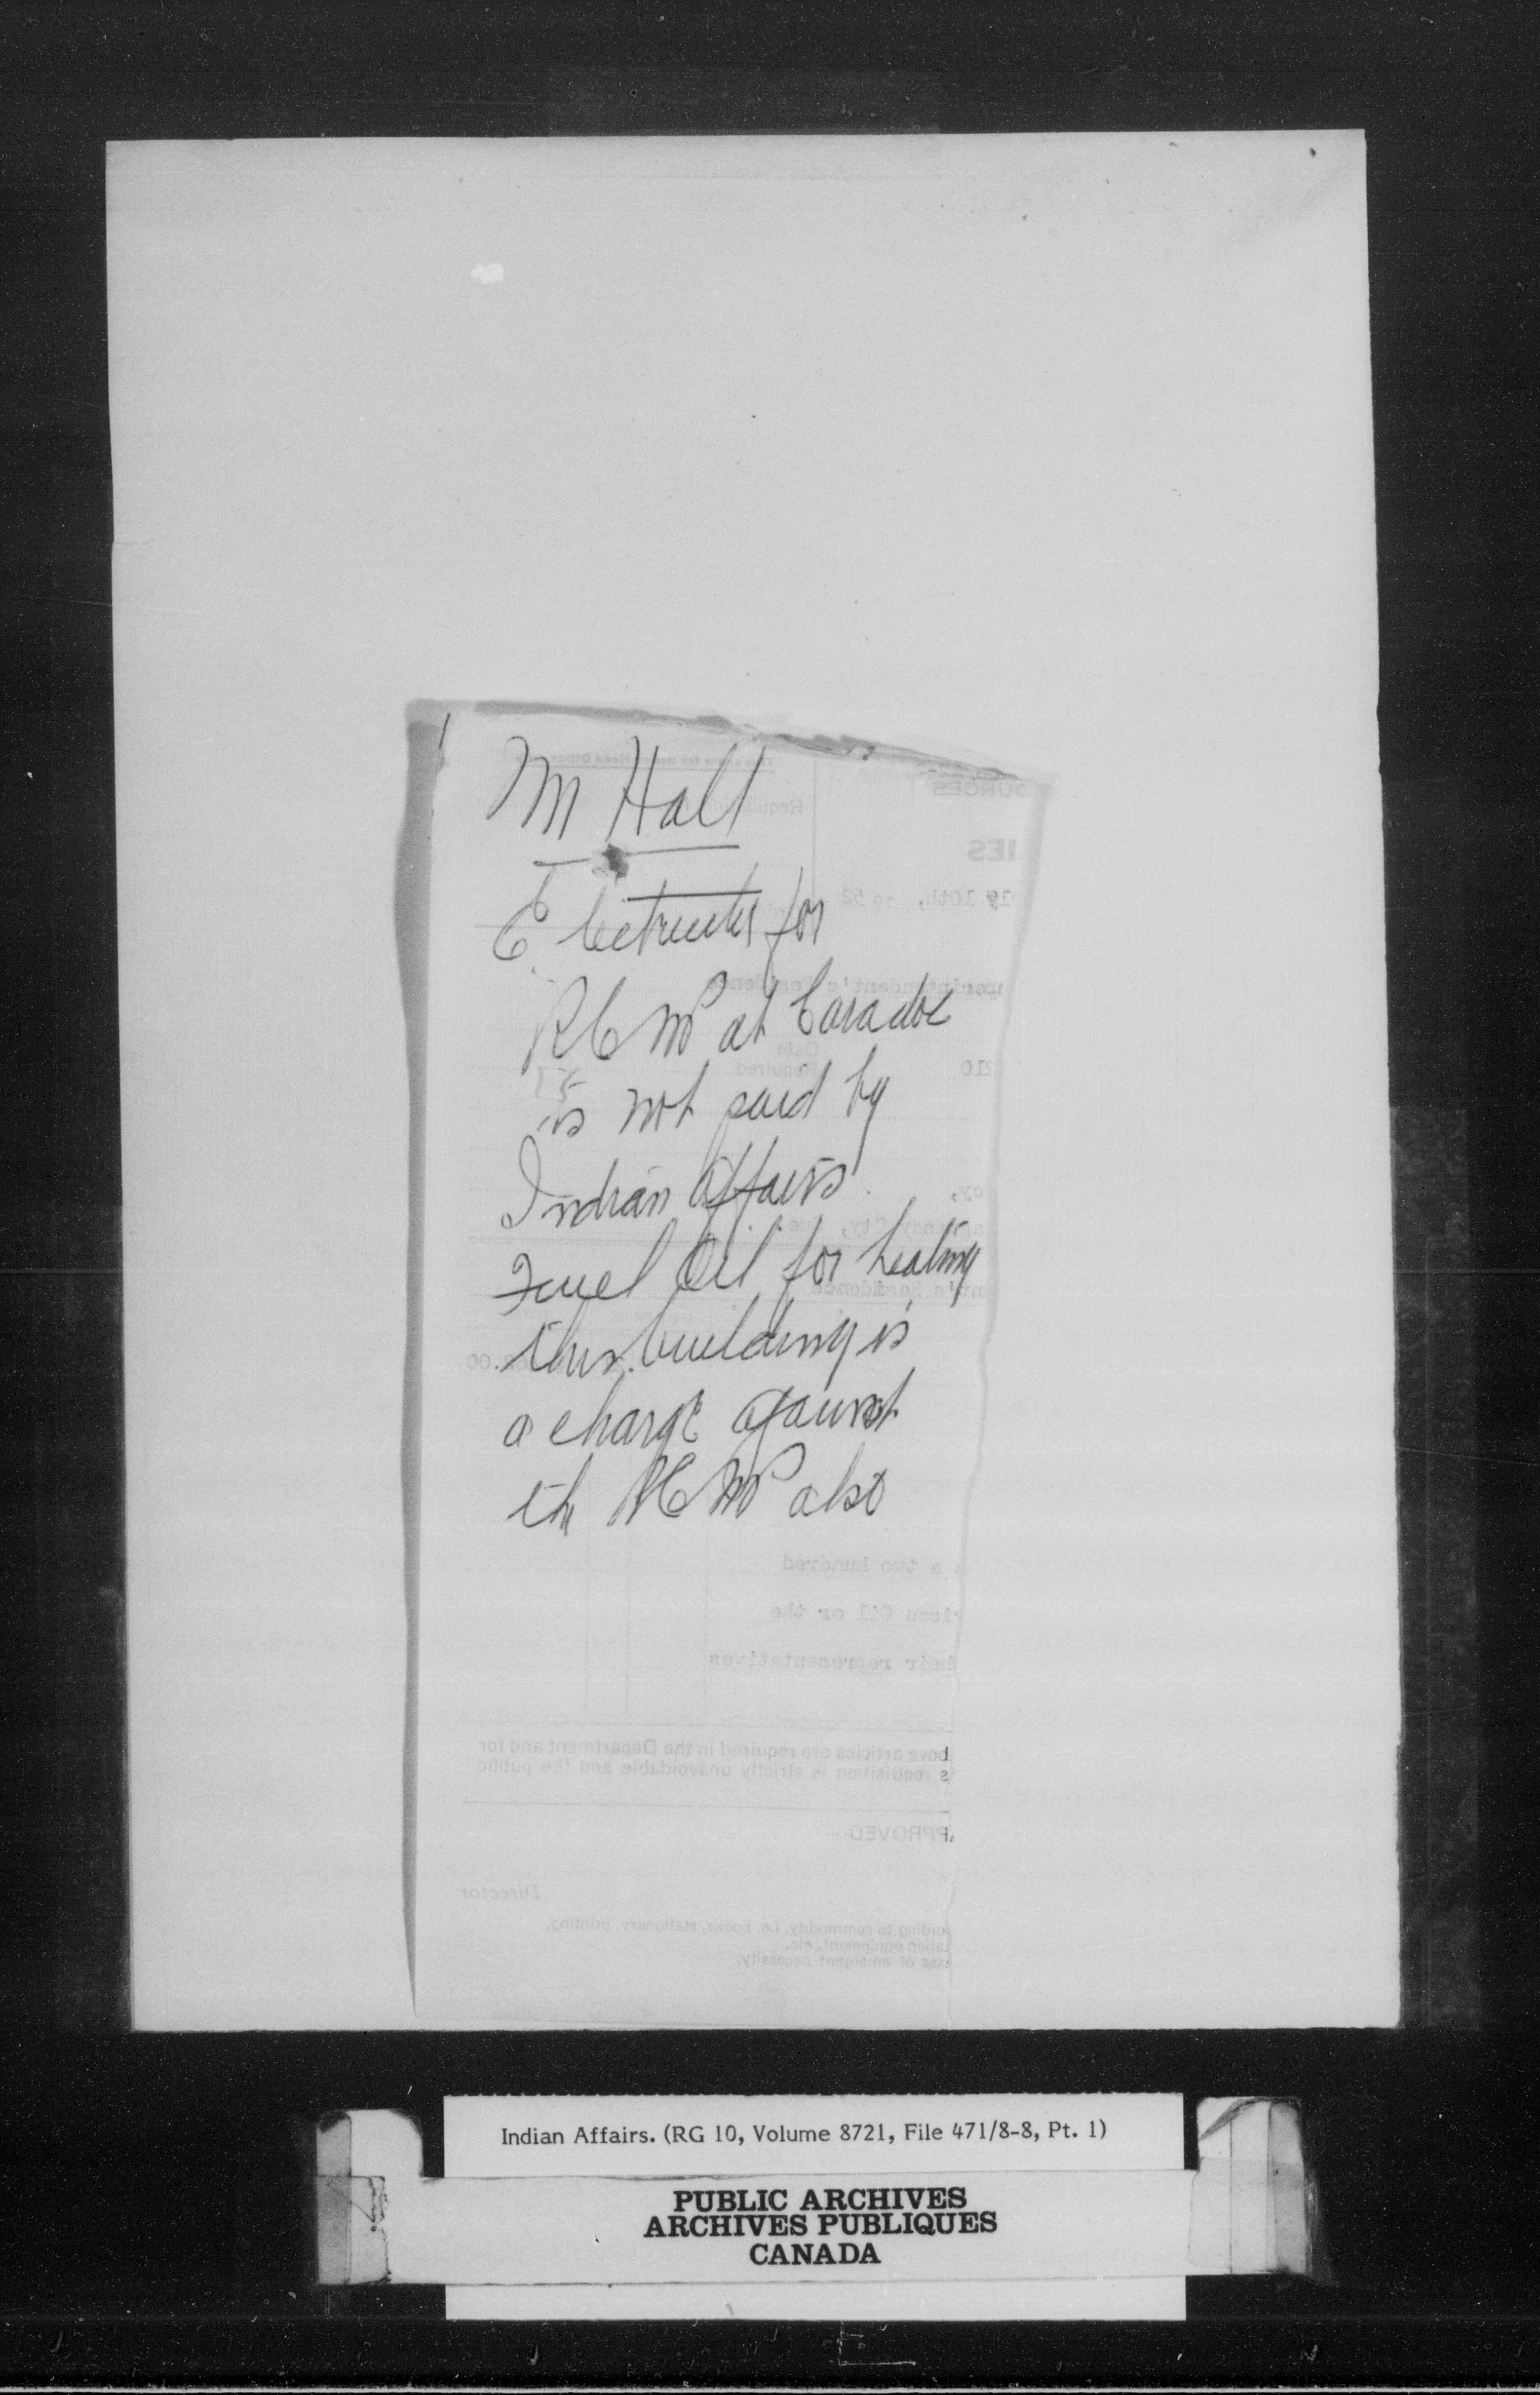 Mr Hall
Electricity for
RCMP at Caradoc
is not paid by
Indian Affairs.
Fuel Oil for heating
this building is
a charge against
the RCMP also
Indian Affairs. (RG 10, Volume 8721, File 471/8-8, Pt. 1)
PUBLIC ARCHIVES
ARCHIVES PUBLIQUES
CANADA